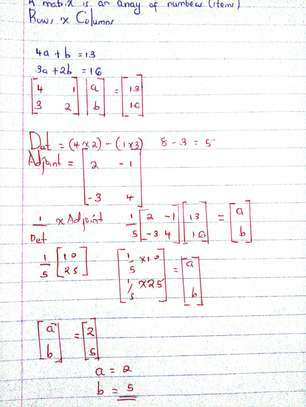 A matrix is an array of number (items)
Rows x Columns
4a + b = 13
3a + 2b = 16
[4 1; 3 2] [a; b] = [13; 16]
Det = (4x2) - (1x3) 8 - 3 = 5
Adjoint = [2 -1; -3 4]
1/Det x Adjoint 1/5 [2 -1; -3 4] [13; 16] = [a; b]
1/5 [10; 25] [1/5 x10; 1/5 x25] = [a; b]
[a; b] = [2; 5]
a = 2
b = 5